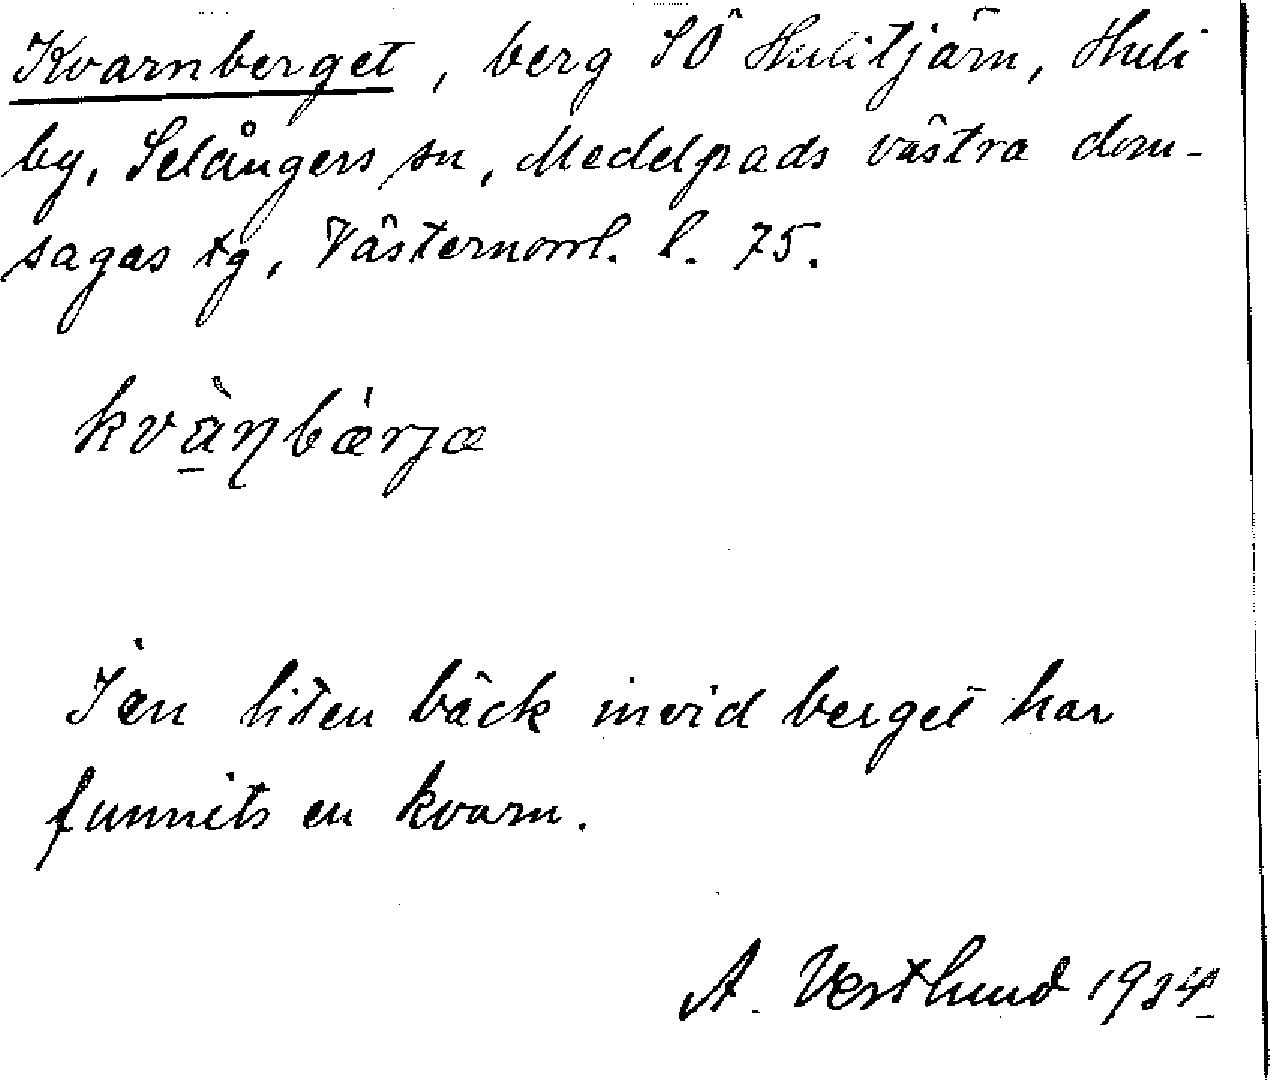 Kvarnberget, berg SÖ Hulitjärn, Huli
by, Selångers sn, Medelpads västra dom-
sagas tg, Västernorrl. l. 75.
kvànbǽrjæ
I en liten bäck invid berget har
funnits en kvarn.
A. Vestlund 1934